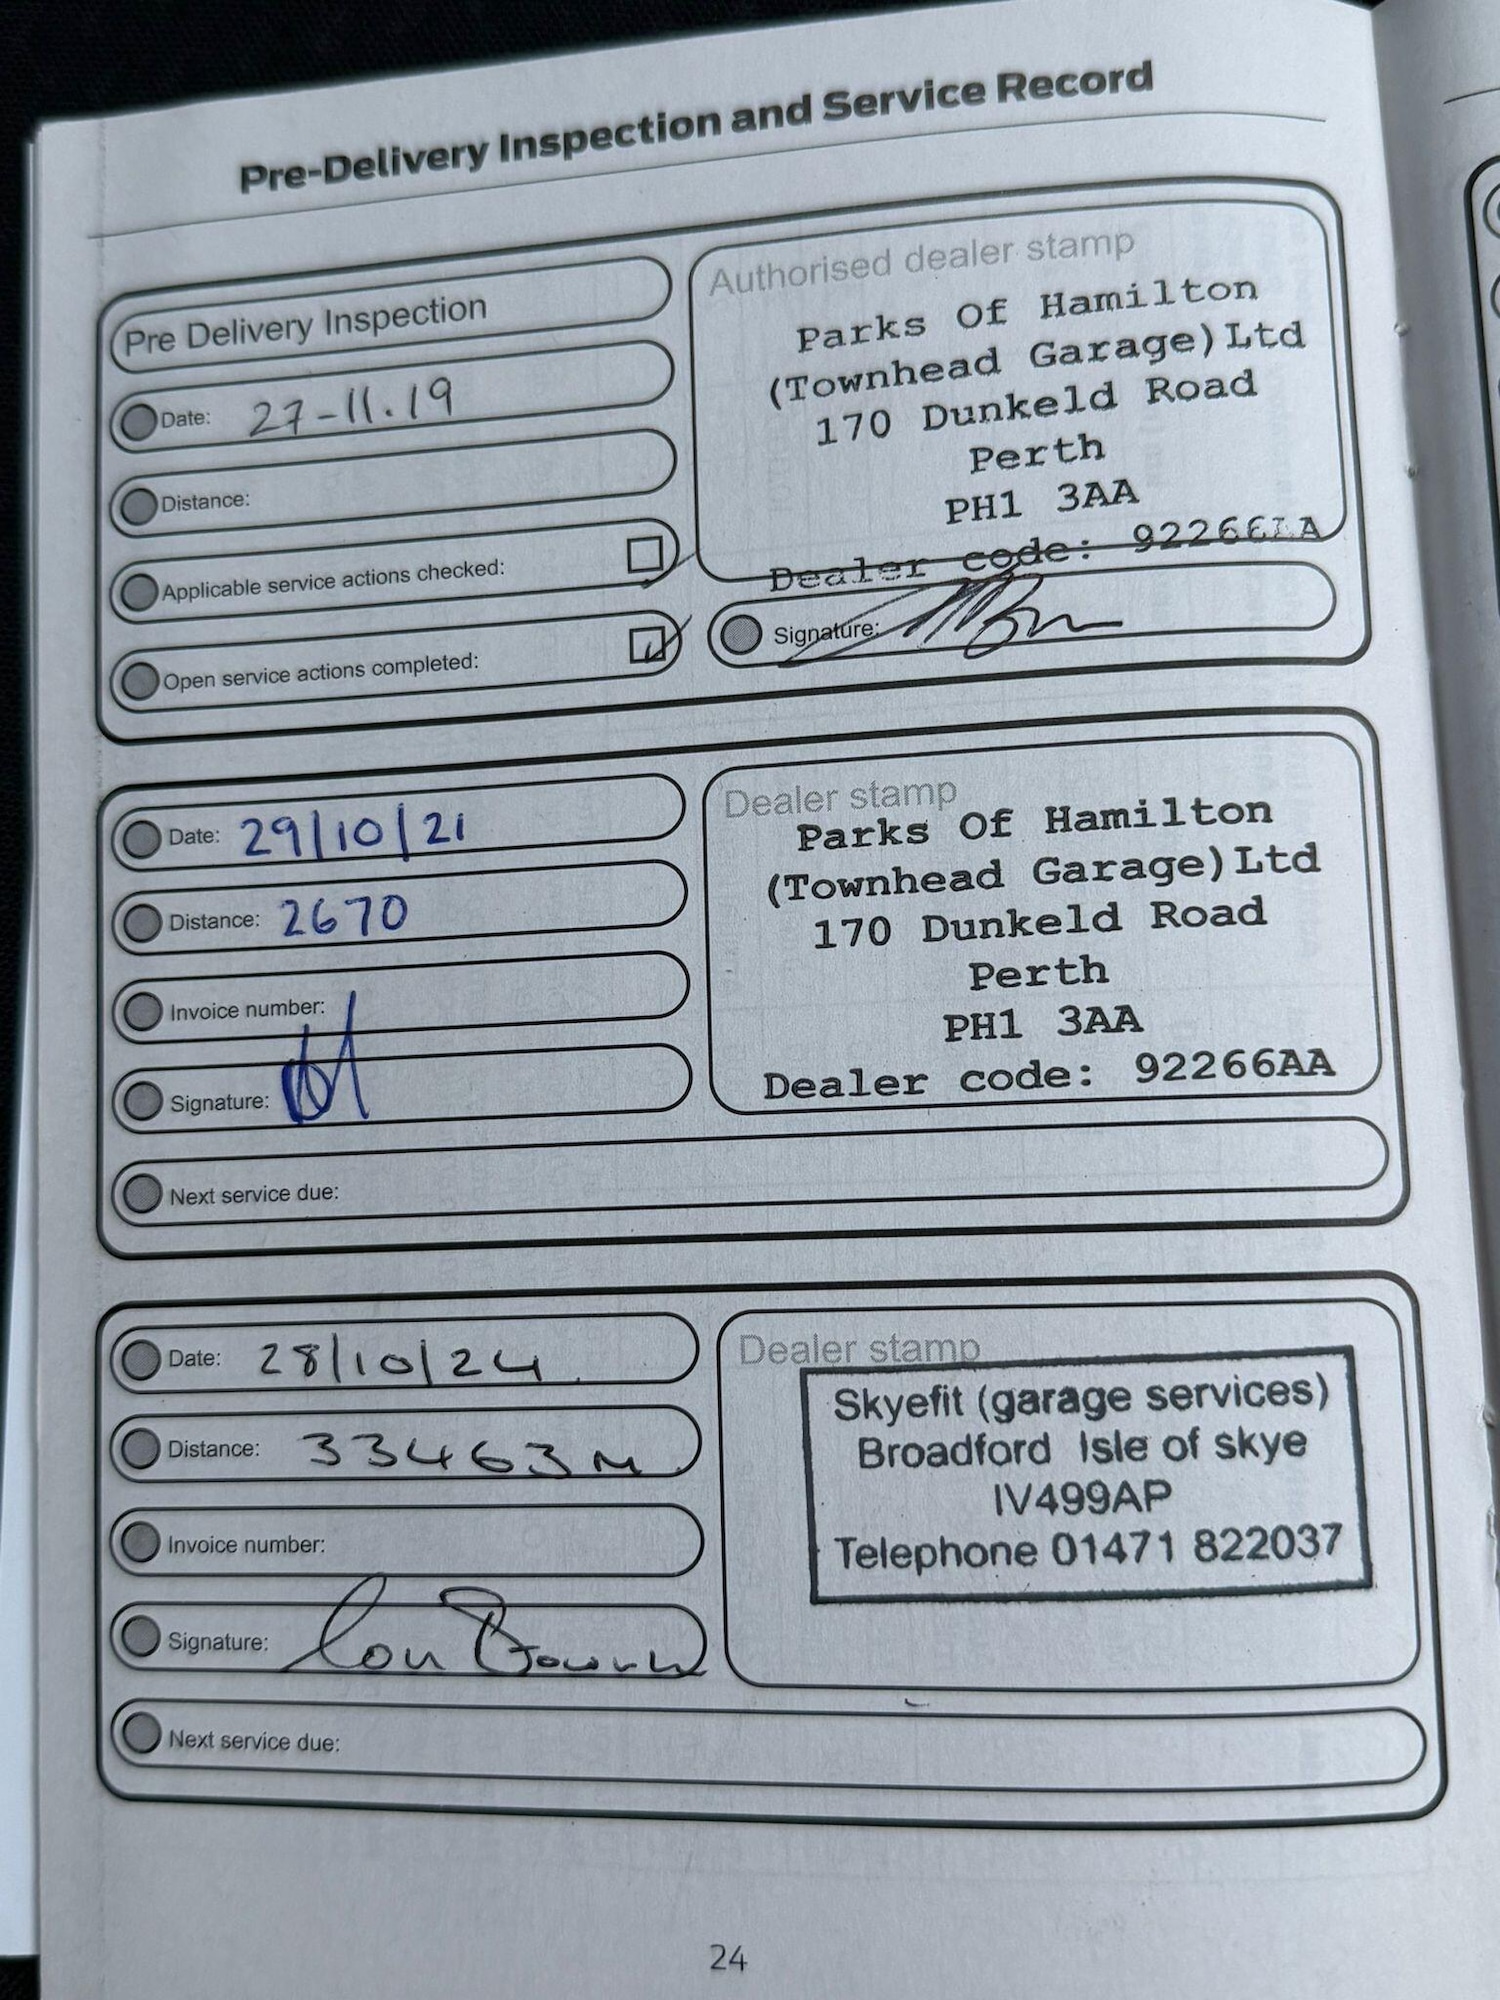 Pre-Delivery Inspection and Service Record
Pre Delivery Inspection
Date: 27-11.19
Distance:
Applicable service actions checked:
Open service actions completed:
Authorised dealer stamp
Parks Of Hamilton
(Townhead Garage) Ltd
170 Dunkeld Road
Perth
PH1 3AA
Dealer code:
Signature:
Date: 29/10/21
Distance: 2670
Invoice number:
Signature:
Next service due:
Dealer stamp
Parks Of Hamilton
(Townhead Garage) Ltd
170 Dunkeld Road
Perth
PH1 3AA
Dealer code: 92266AA
Date: 28/10/24
Distance: 33463M
Invoice number:
Signature:
Next service due:
Dealer stamp
Skyefit (garage services)
Broadford Isle of skye
IV499AP
Telephone 01471 822037
24